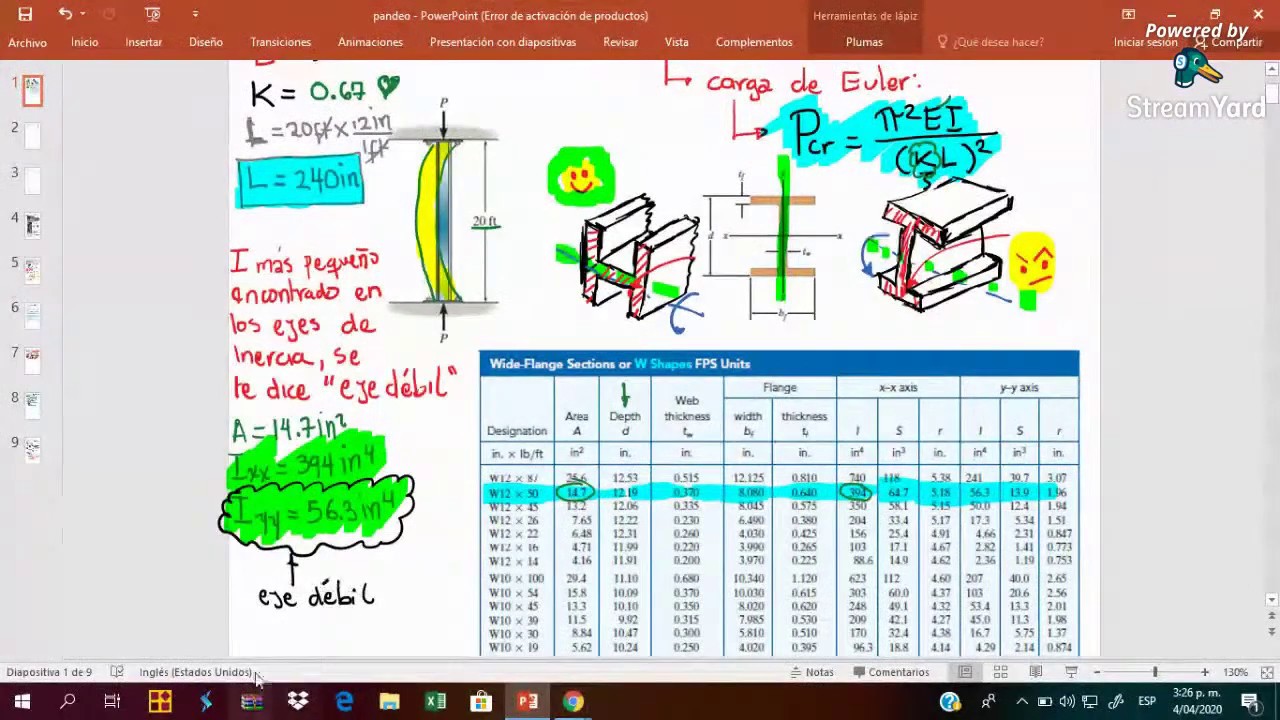 pandeo - PowerPoint (Error de activación de productos)
Herramientas de lápiz
Archivo Inicio Insertar Diseño Transiciones Animaciones Presentación con diapositivas Revisar Vista Complementos Plumas ¿Qué desea hacer? Iniciar sesión Compartir
Powered by
StreamYard
1
2
3
4
5
6
7
8
9
K = 0.67
L = 20ft × 12in
1ft
L = 240in
P
20 ft
P
carga de Euler:
Pcr = π²EI
(KL)²
tf
d
x
x
tw
bf
I más pequeño
encontrado en
los ejes de
inercia, se
te dice "eje débil"
A = 14.7in²
Ixx = 394 in⁴
Iyy = 56.3 in⁴
eje débil
Wide-Flange Sections or W Shapes FPS Units
Flange x–x axis y–y axis
Designation Area A Depth d Web thickness tw width bf thickness tf I S r I S r
in. × lb/ft in² in. in. in. in. in⁴ in³ in. in⁴ in³ in.
W12 × 87 25.6 12.53 0.515 12.125 0.810 740 118 5.38 241 39.7 3.07
W12 × 50 14.7 12.19 0.370 8.080 0.640 394 64.7 5.18 56.3 13.9 1.96
W12 × 45 13.2 12.06 0.335 8.045 0.575 350 58.1 5.15 50.0 12.4 1.94
W12 × 26 7.65 12.22 0.230 6.490 0.380 204 33.4 5.17 17.3 5.34 1.51
W12 × 22 6.48 12.31 0.260 4.030 0.425 156 25.4 4.91 4.66 2.31 0.847
W12 × 16 4.71 11.99 0.220 3.990 0.265 103 17.1 4.67 2.82 1.41 0.773
W12 × 14 4.16 11.91 0.200 3.970 0.225 88.6 14.9 4.62 2.36 1.19 0.753
W10 × 100 29.4 11.10 0.680 10.340 1.120 623 112 4.60 207 40.0 2.65
W10 × 54 15.8 10.09 0.370 10.030 0.615 303 60.0 4.37 103 20.6 2.56
W10 × 45 13.3 10.10 0.350 8.020 0.620 248 49.1 4.32 53.4 13.3 2.01
W10 × 39 11.5 9.92 0.315 7.985 0.530 209 42.1 4.27 45.0 11.3 1.98
W10 × 30 8.84 10.47 0.300 5.810 0.510 170 32.4 4.38 16.7 5.75 1.37
W10 × 19 5.62 10.24 0.250 4.020 0.395 96.3 18.8 4.14 4.29 2.14 0.874
Diapositiva 1 de 9 Inglés (Estados Unidos) Notas Comentarios 130%
ESP
3:26 p. m.
4/04/2020